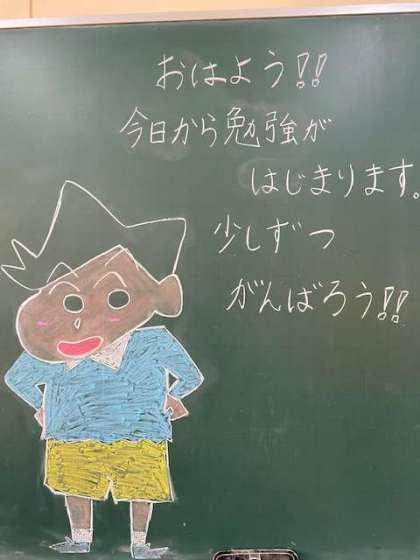 おはよう!!
今日から勉強が
はじまります。
少しずつ
がんばろう!!